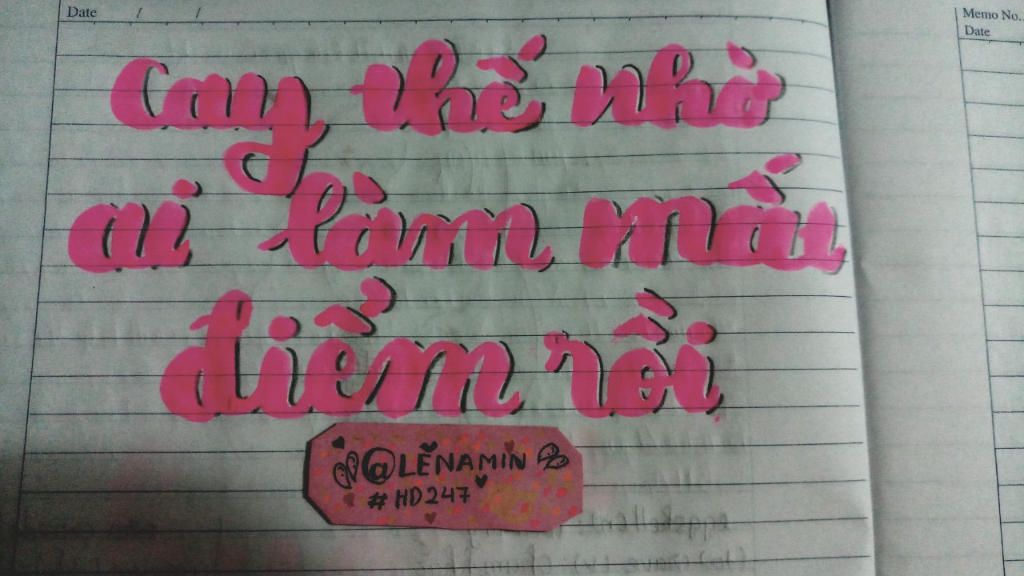 Date / /
Memo No.
Date
Cay thế nhờ
ai làm mấu
điểm rồi
@LENAMIN
#HD247